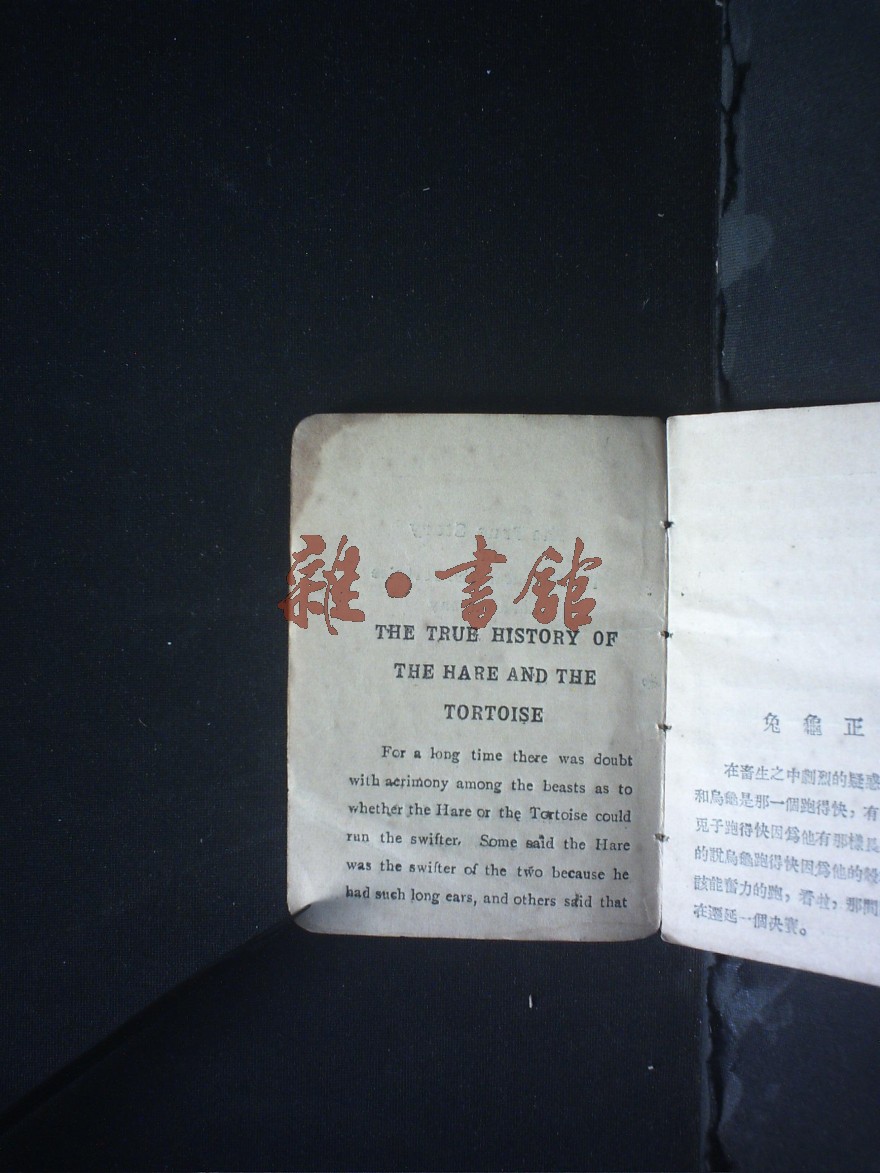 雜·書館
THE TRUE HISTORY OF
THE HARE AND THE
TORTOISE
For a long time there was doubt
with acrimony among the beasts as to
whether the Hare or the Tortoise could
run the swifter. Some said the Hare
was the swifter of the two because he
had such long ears, and others said that
兔龜正
在畜生之中劇烈的疑惑
和烏龜是那一個跑得快，有
兎子跑得快因爲他有那樣長
的說烏龜跑得快因爲他的殼
該能奮力的跑，看哉，那間
在遷延一個决賽。